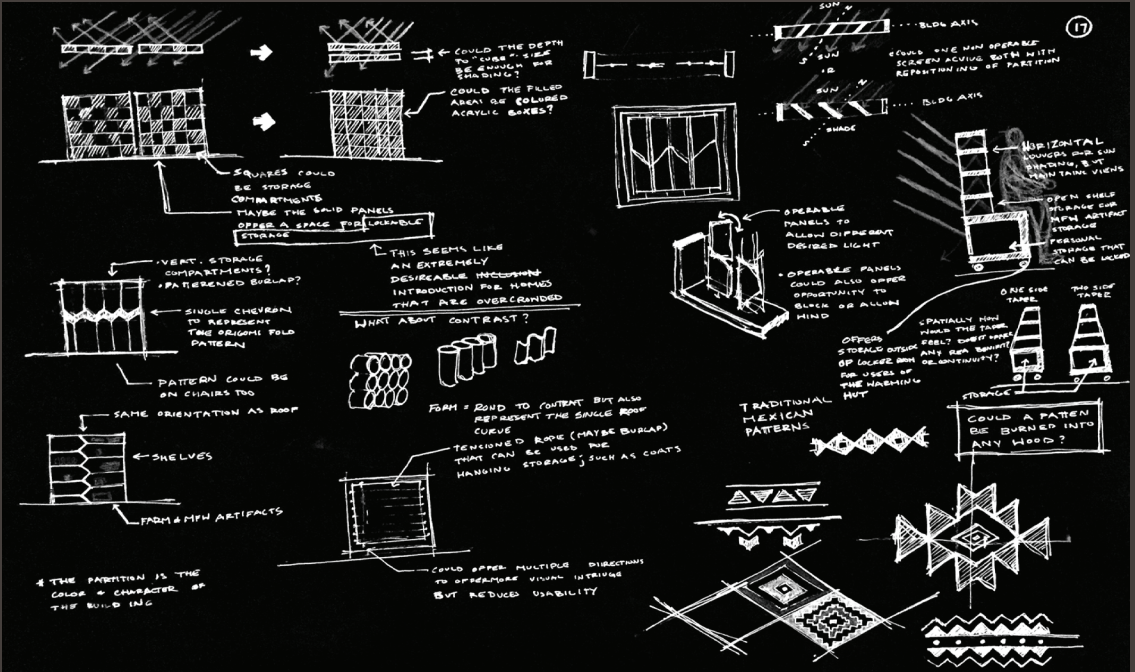 17
COULD THE DEPTH
TO "CUBE" SIZE
BE ENOUGH FOR
SHADING?
COULD THE FILLED
AREAS BE COLORED
ACRYLIC BOXES?
SQUARES COULD
BE STORAGE
COMPARTMENTS
MAYBE THE SOLID PANELS
OFFER A SPACE FOR LOCKABLE
STORAGE
THIS SEEMS LIKE
AN EXTREMELY
DESIREABLE INCLUSION
INTRODUCTION FOR HOMES
THAT ARE OVERCROWDED
• VERT. STORAGE
COMPARTMENTS?
• PATTERENED BURLAP?
SINGLE CHEVRON
TO REPRESENT
THE ORIGAMI FOLD
PATTERN
PATTERN COULD BE
ON CHAIRS TOO
SAME ORIENTATION AS ROOF
SHELVES
FARM & MFW ARTIFACTS
* THE PARTITION IS THE
COLOR & CHARACTER OF
THE BUILDING
WHAT ABOUT CONTRAST?
FORM = ROND TO CONTRAT BUT ALSO
REPRESENT THE SINGLE ROOF
CURVE
TENSIONED ROPE (MAYBE BURLAP)
THAT CAN BE USED FOR
HANGING STORAGE; SUCH AS COATS
COULD OFFER MULTIPLE DIRECTIONS
TO OFFERMORE VISUAL INTRIUGE
BUT REDUCED USABILITY
SUN
N
BLDG AXIS
S
SUN
OR
SUN
N
BLDG AXIS
S
SHADE
• COULD ONE NON OPERABLE
SCREEN ACHIVE BOTH WITH
REPOSITIONING OF PARTITION
OPERABLE
PANELS TO
ALLOW DIFFERENT
DESIRED LIGHT
• OPERABLE PANELS
COULD ALSO OFFER
OPPORTUNITY TO
BLOCK OR ALLOW
WIND
HORIZONTAL
LOUVERS FOR SUN
SHADING, BUT
MAINTAINS VIEWS
OPEN SHELF
STORAGE FOR
MFW ARTIFACT
STORAGE
PERSONAL
STORAGE THAT
CAN BE LOCKED
OFFERS
STORAGE OUTSIDE
OF LOCKER ROOM
FOR USERS OF
THE WARMING
HUT
ONE SIDE
TAPER
TWO SIDE
TAPER
SPATIALLY HOW
WOULD THE TAPER
FEEL? DOES IT OFFER
ANY REAL BENIFIT
OR CONTINUITY?
STORAGE
TRADITIONAL
MEXICAN
PATTERNS
COULD A PATTEN
BE BURNED INTO
ANY WOOD?